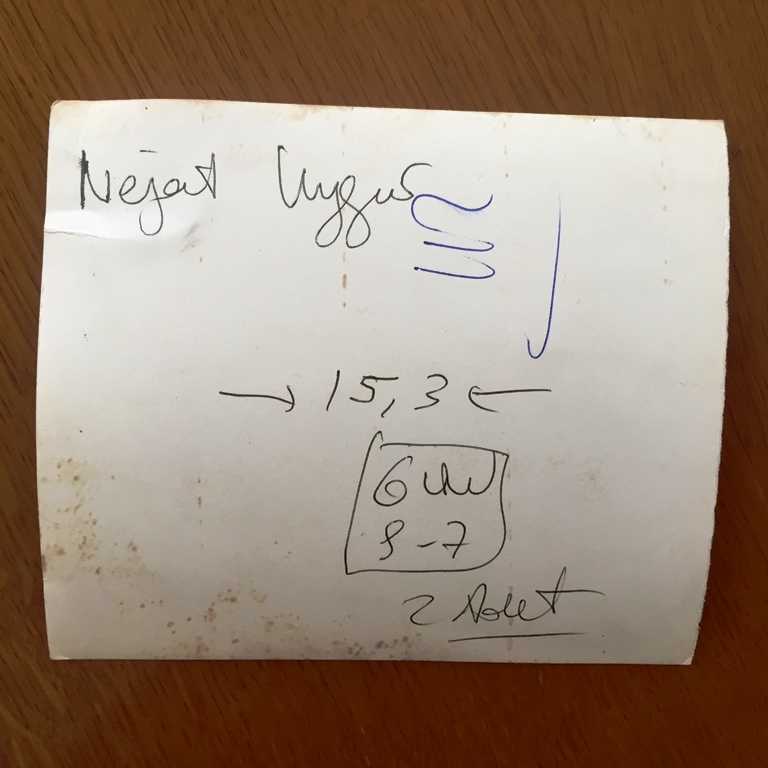 Nejat Uygur
→ 15,3 ←
6
9-7
2 Adet